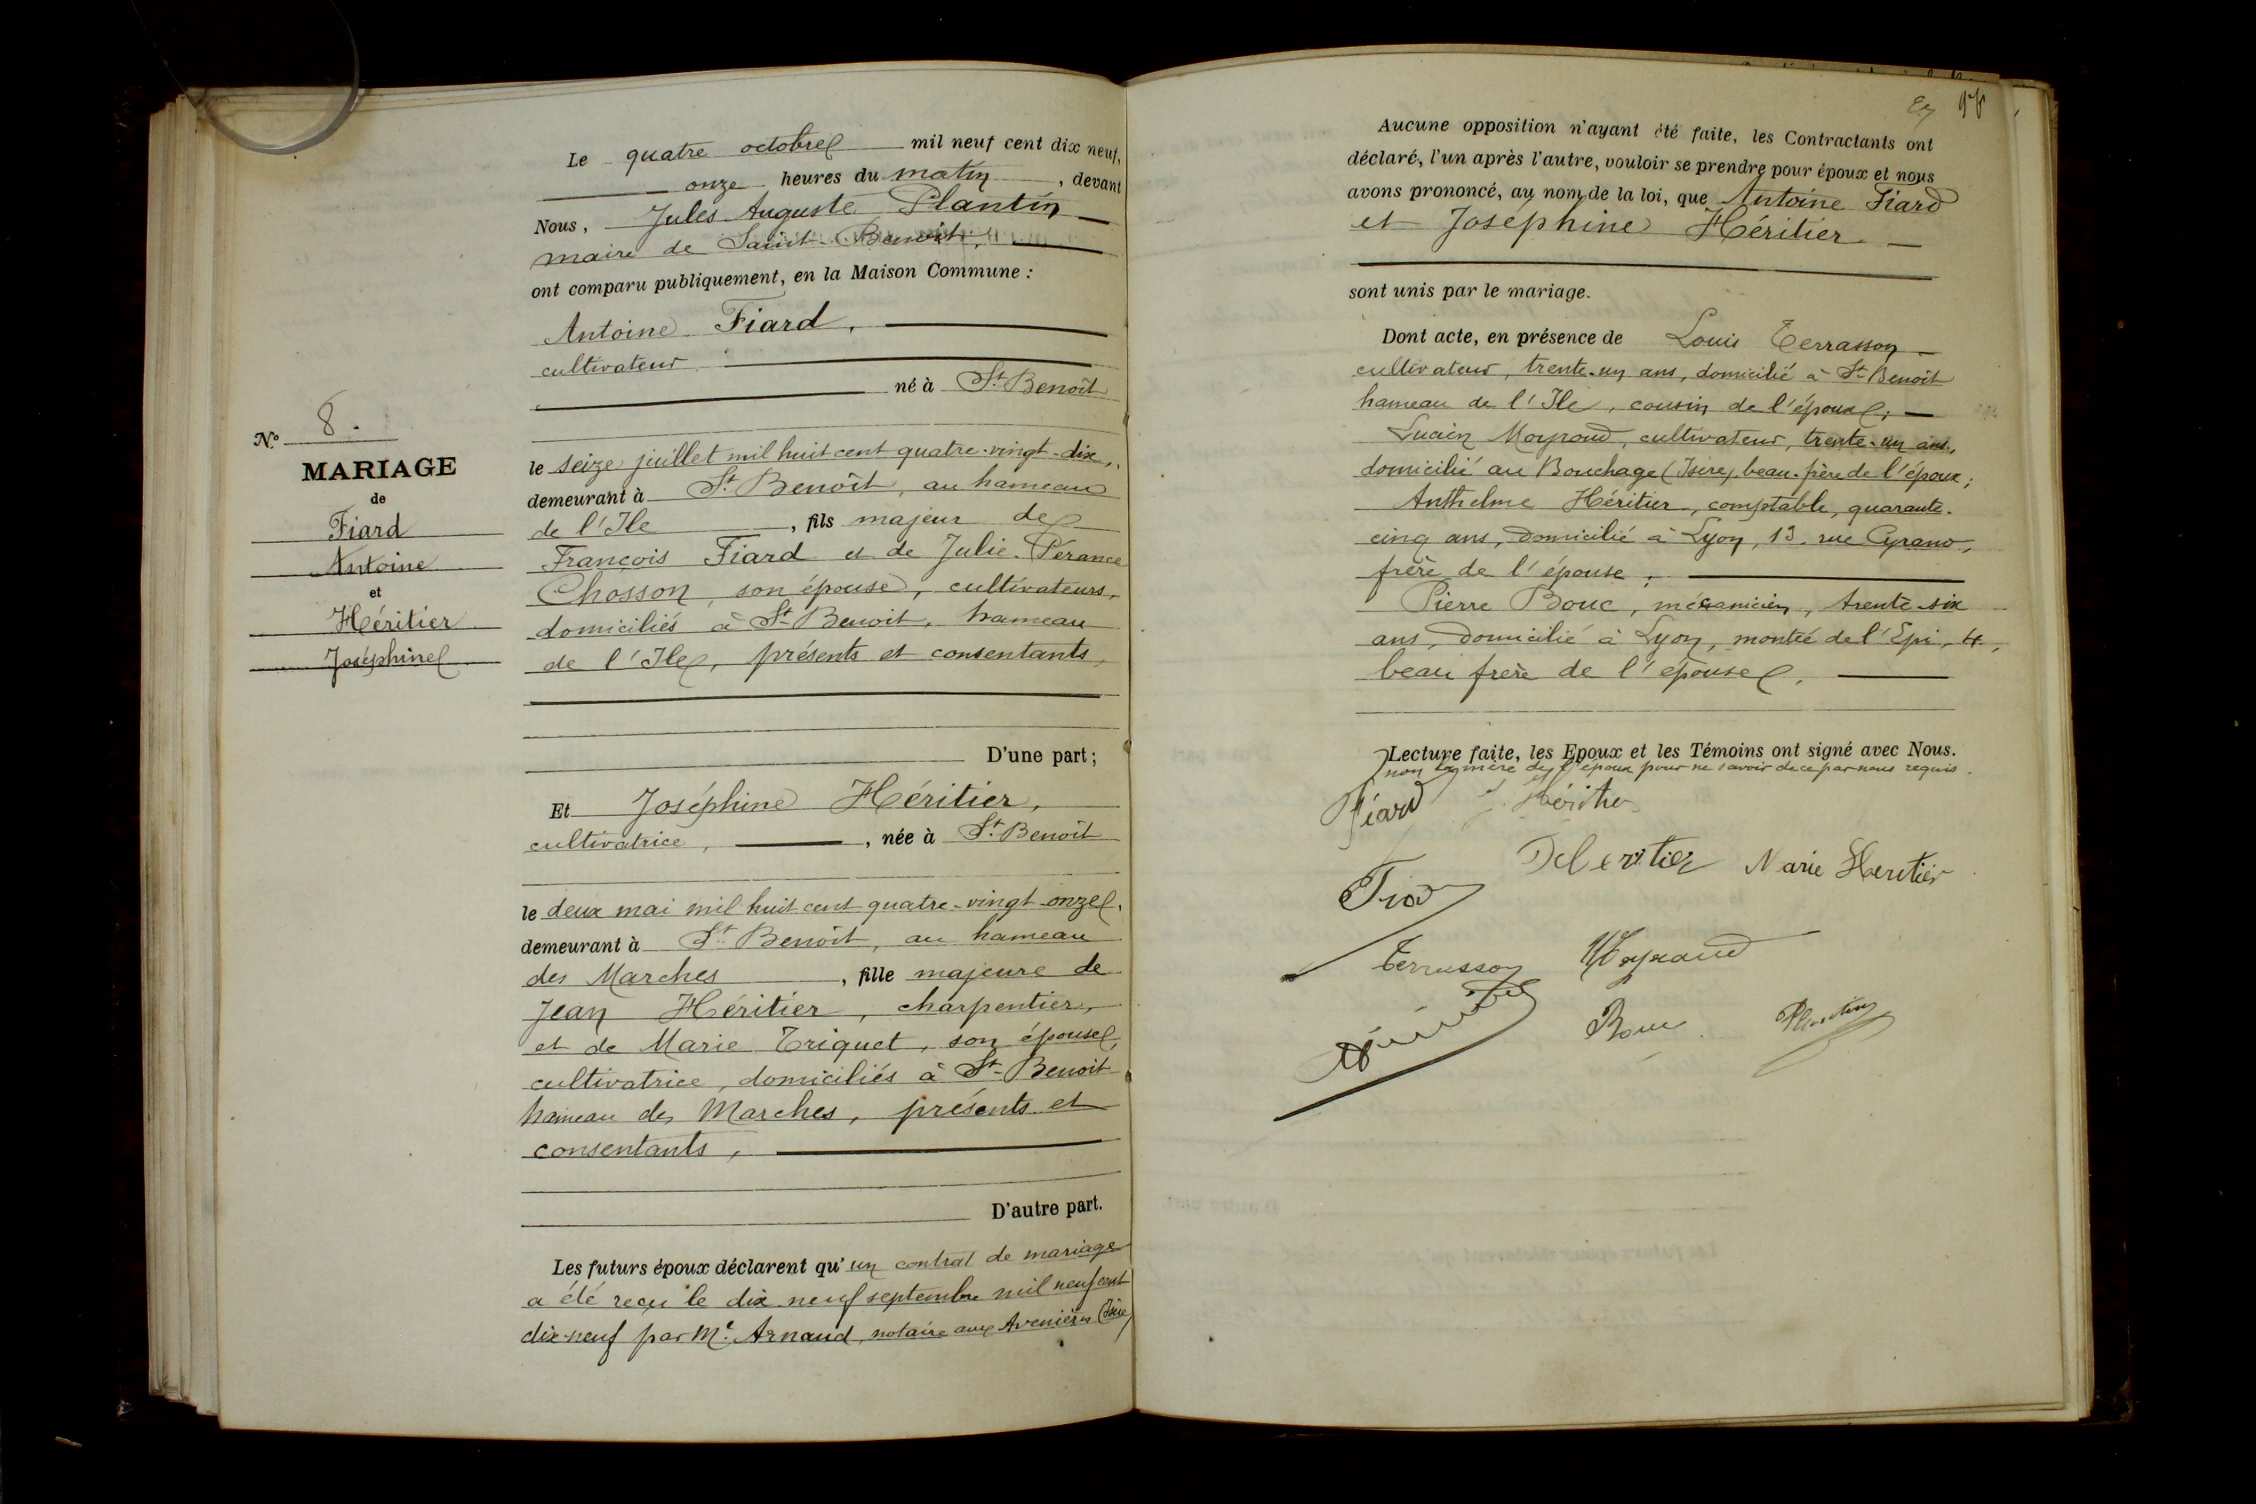 Le quatre octobre mil neuf cent dix neuf,
onze heures du matin, devant
Nous, Jules Auguste Plantin
maire de Saint-Benoît,
ont comparu publiquement, en la Maison Commune :
Antoine Fiard,
cultivateur
né à St Benoît
N° 8.
MARIAGE
de
Fiard
Antoine
et
Héritier
Joséphine
le seize juillet mil huit cent quatre-vingt-dix,
demeurant à St Benoît, au hameau
de l'Ile, fils majeur de
François Fiard et de Julie Pérance
Chosson, son épouse, cultivateurs,
domiciliés à St Benoit, hameau
de l'Ile, présents et consentants,
D'une part ;
Et Joséphine Héritier,
cultivatrice, née à St Benoît
le deux mai mil huit cent quatre-vingt-onze,
demeurant à St Benoît, au hameau
des Marches, fille majeure de
Jean Héritier, charpentier,
et de Marie Triquet, son épouse,
cultivatrice, domiciliés à St Benoit
hameau des Marches, présents et
consentants,
D'autre part.
Les futurs époux déclarent qu'un contrat de mariage
a été reçu le dix neuf septembre mil neuf cent
dix-neuf par Me Arnaud, notaire aux Avenières (Isère)
Aucune opposition n'ayant été faite, les Contractants ont
déclaré, l'un après l'autre, vouloir se prendre pour époux et nous
avons prononcé, au nom de la loi, que Antoine Fiard
et Joséphine Héritier
sont unis par le mariage.
Dont acte, en présence de Louis Terrasson
cultivateur, trente-un ans, domicilié à St Benoît
hameau de l'Ile, cousin de l'époux,
Lucien Meyraud, cultivateur, trente-un ans,
domicilié au Bouchage (Isère), beau-frère de l'époux ;
Anthelme Héritier, comptable, quarante-
cinq ans, domicilié à Lyon, 13, rue Cyrano,
frère de l'épouse ;
Pierre Bouc, mécanicien, trente-six
ans, domicilié à Lyon, montée de l'Epi, 4,
beau frère de l'épouse.
Lecture faite, les Epoux et les Témoins ont signé avec Nous.
non la mère de l'époux pour ne savoir de ce par nous requis.
Fiard J. Héritier
Marie Heritier
Terrasson Meyraud
Bouc Plantin